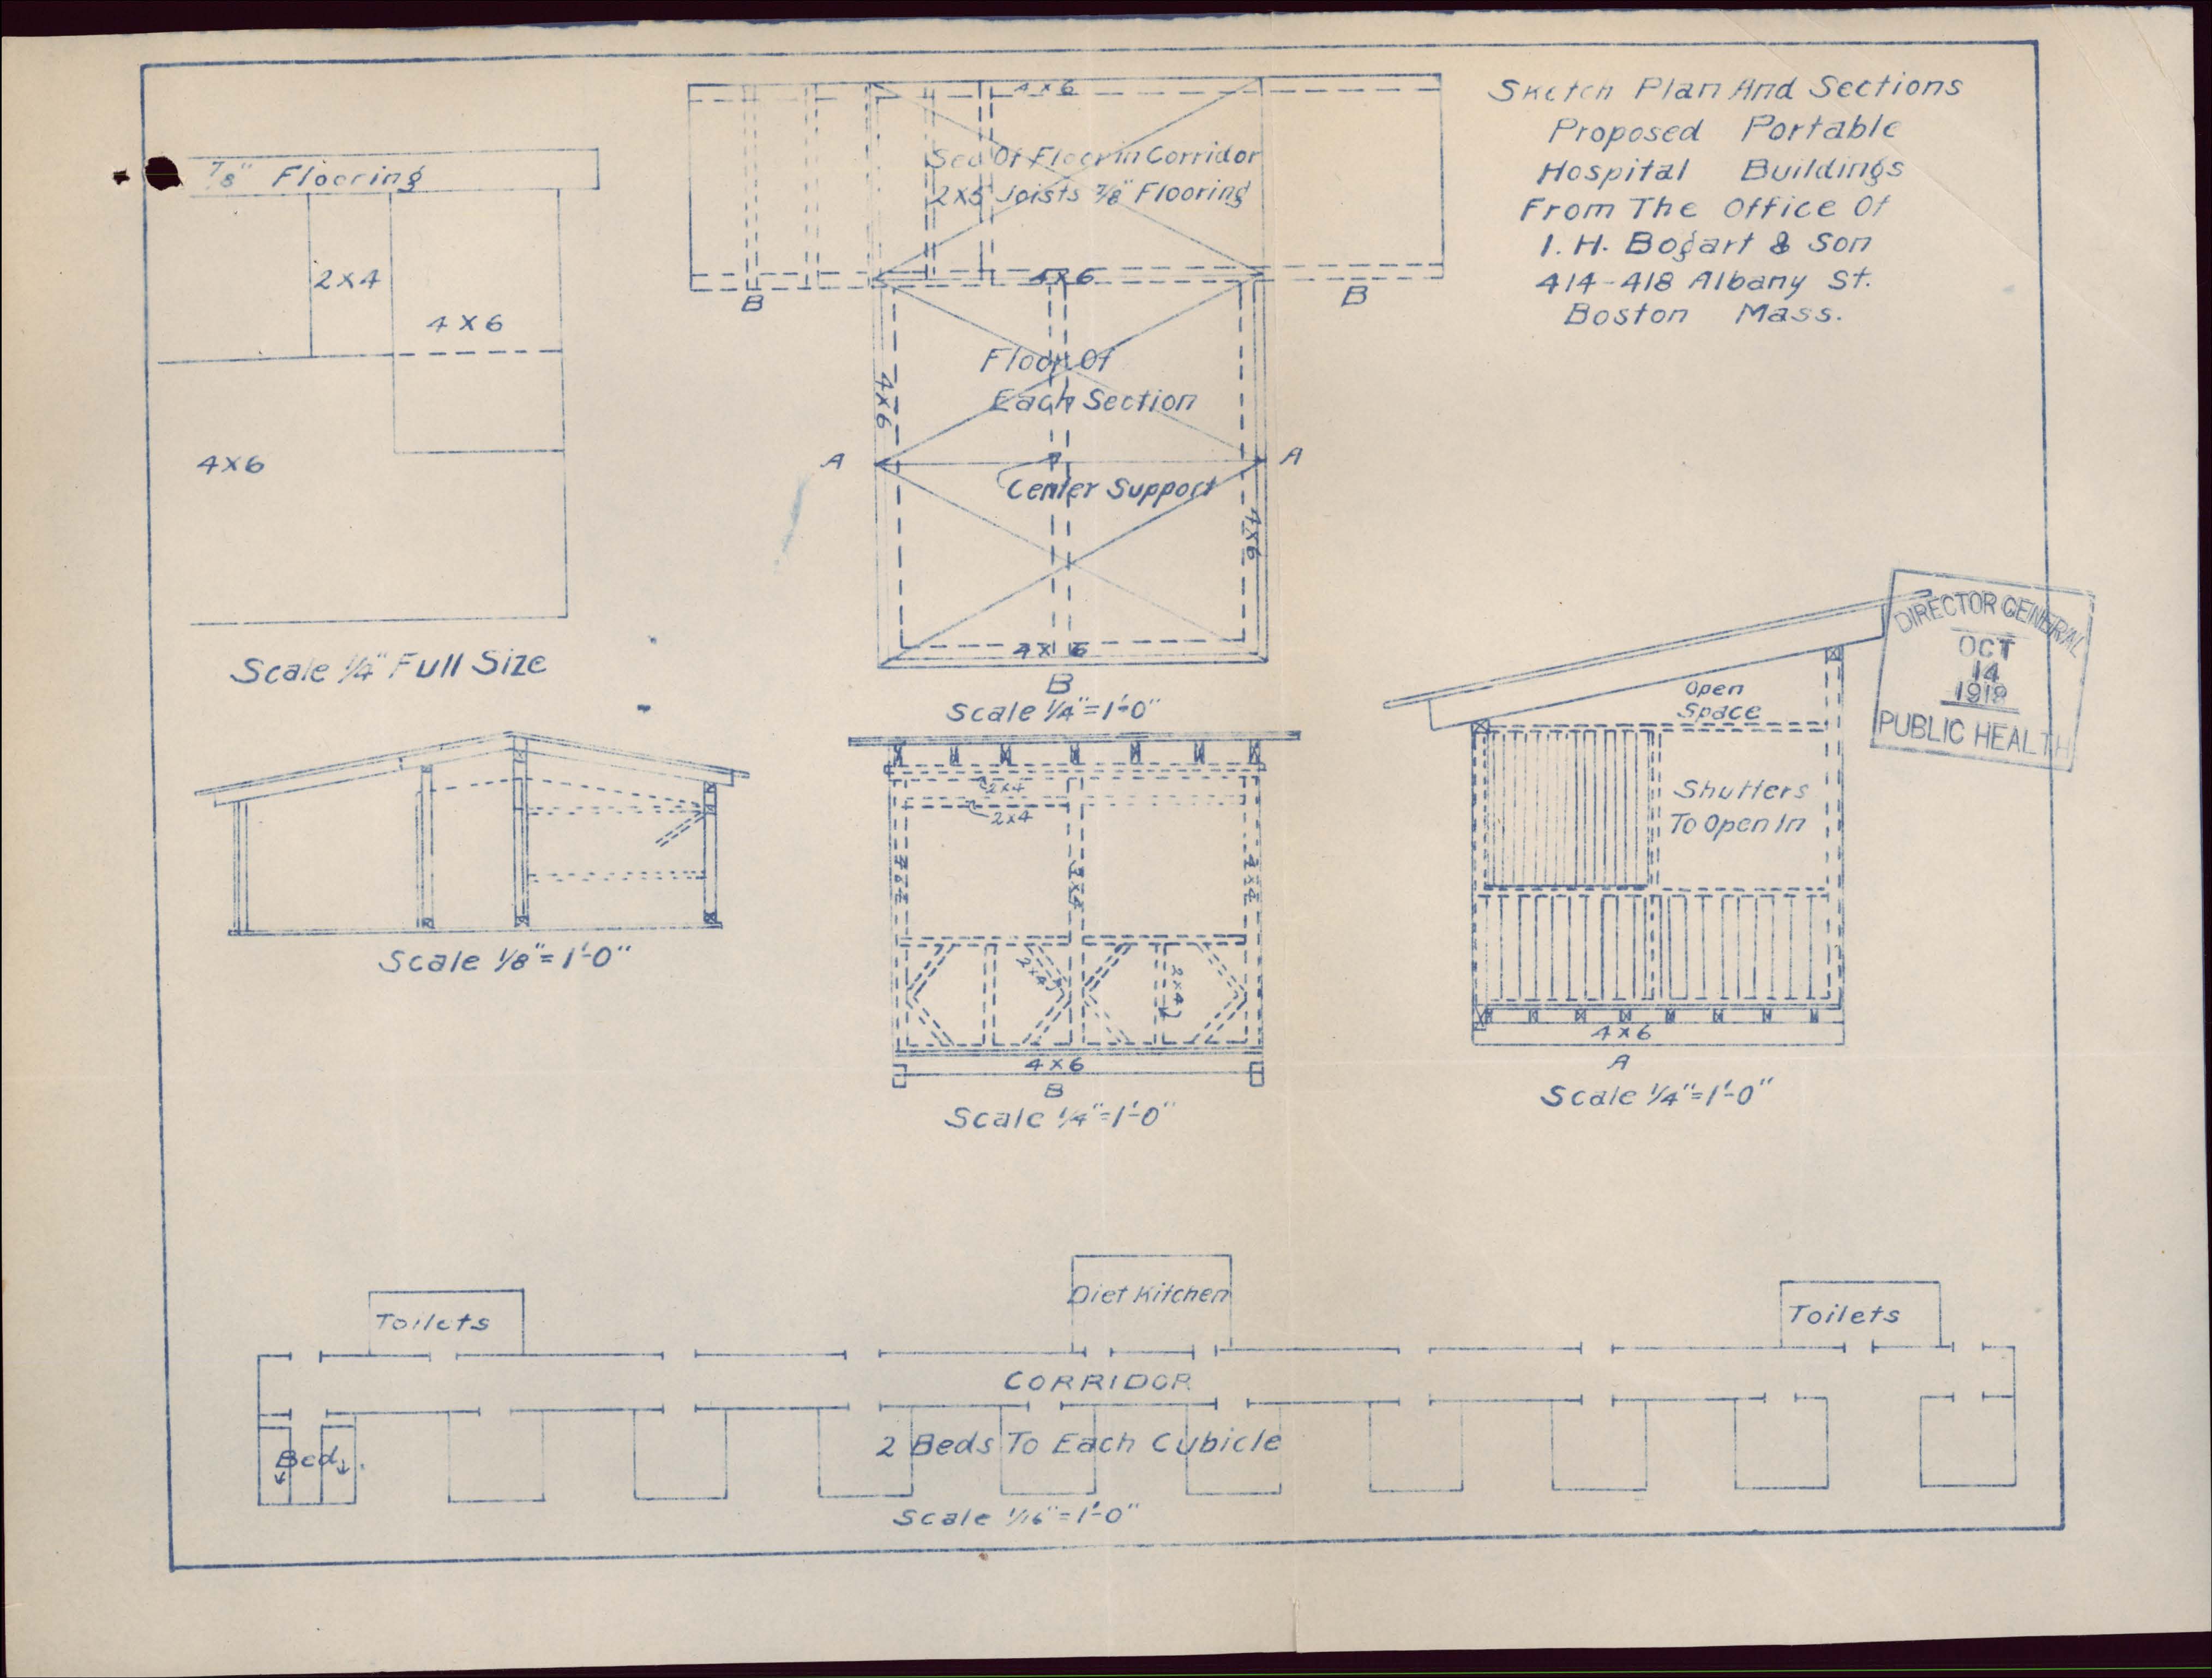 Sketch Plan And Sections
Proposed Portable
Hospital Buildings
From The Office Of
I. H. Bogart & Son
414-418 Albany St.
Boston Mass.
7/8" Flooring
2x4
4x6
4x6
Scale 1/4" Full Size
4x6
Sec Of Floor in Corridor
2x5 Joists 7/8" Flooring
4x6
B
B
Floor Of
Each Section
4x6
A
A
Center Support
4x6
4x6
B
Scale 1/4"=1'-0"
DIRECTOR GENERAL
OCT
14
PUBLIC HEALTH
Scale 1/8"=1'-0"
2x4
2x4
2x4
2x4
2x4
2x4
2x4
4x6
B
Scale 1/4"=1'-0"
Open
Space
Shutters
To Open In
4x6
A
Scale 1/4"=1'-0"
Toilets
Diet Kitchen
Toilets
CORRIDOR
Bed
2 Beds To Each Cubicle
Scale 1/16"=1'-0"